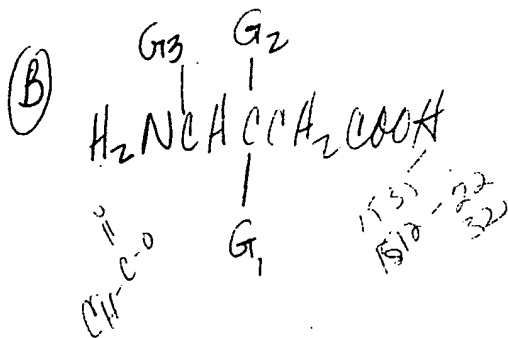 G3 G2
B
H2NCHCCH2COOH
G1
CH-C-O